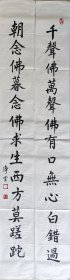 千聲佛萬聲佛有口無心白錯過
朝念佛暮念佛求生西方莫蹉跎